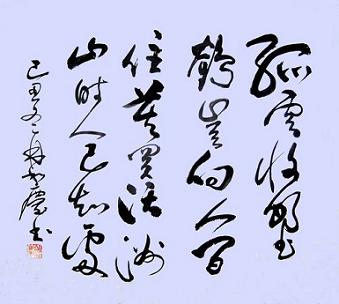 孤雲將野
鶴豈向人間
住莫買沃洲
山時人已知處
己丑冬 林 書